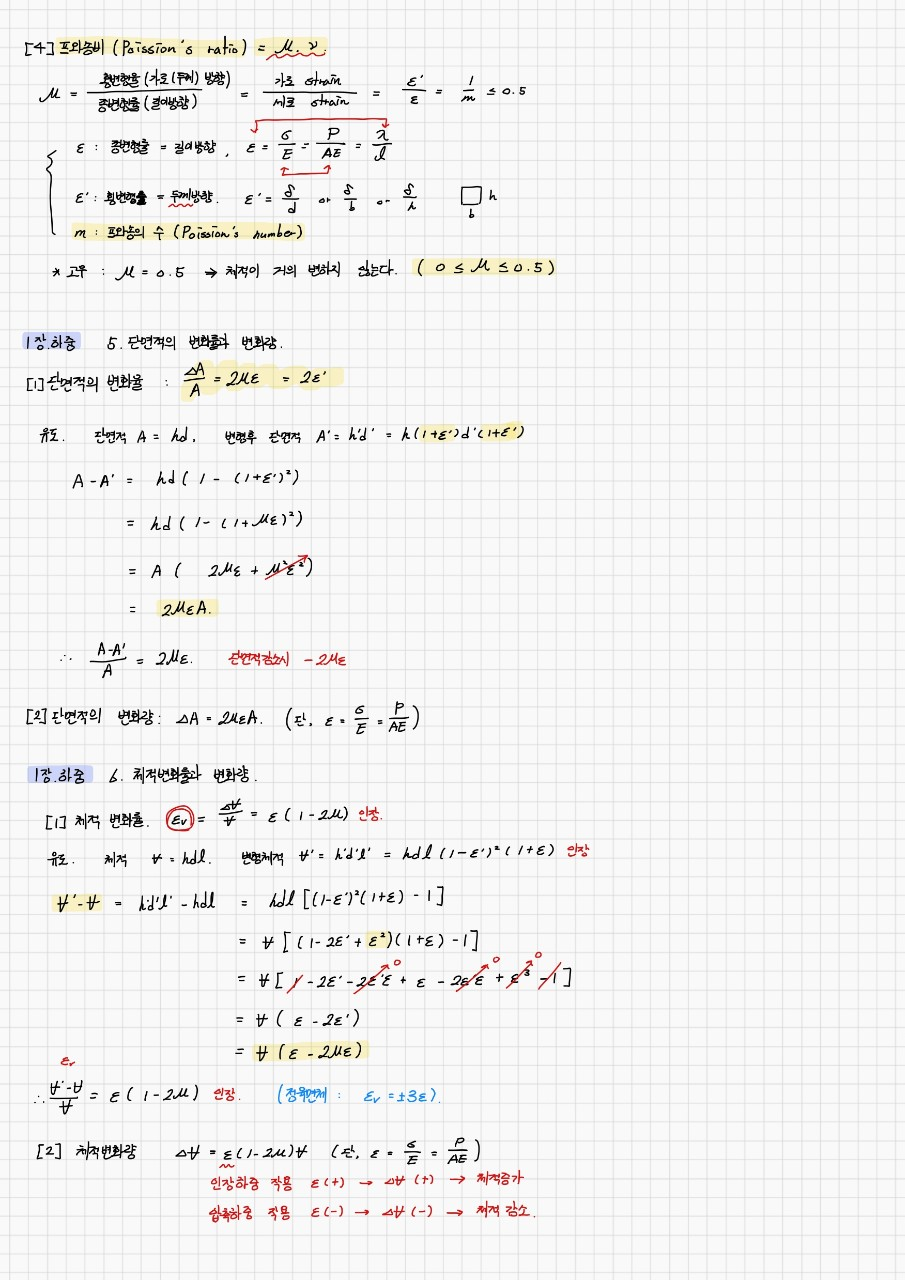 [4] 프와송비 (Poission's ratio) = μ. ν.
μ = 횡변형률 (가로(두께) 방향) / 종변형률 (길이방향) = 가로 strain / 세로 strain = ε' / ε = 1 / m ≤ 0.5
ε : 종변형률 = 길이방향, ε = σ/E = P/AE = λ/l
ε' : 횡변형률 = 두께방향. ε' = δ/d or δ/b or δ/h □ h
b
m : 프와송의 수 (Poission's number)
* 고무 : μ = 0.5 → 체적이 거의 변하지 않는다. (0 ≤ μ ≤ 0.5)
1장.하중 5. 단면적의 변화률과 변화량.
[1] 단면적의 변화율 : ΔA/A = 2με = 2ε'
유도. 단면적 A = hd, 변형후 단면적 A' = h'd' = h(1+ε')d'(1+ε')
A - A' = hd ( 1 - (1+ε')²)
= hd ( 1 - (1+με)²)
= A ( 2με + μ²ε²)
= 2μεA.
∴ A-A'/A = 2με. 단면적감소시 -2με
[2] 단면적의 변화량 : ΔA = 2μεA. (단, ε = σ/E = P/AE)
1장.하중 6. 체적변화률과 변화량.
[1] 체적 변화률. εv = ΔV/V = ε(1-2μ) 인장.
유도. 체적 V = hdl. 변형체적 V' = h'd'l' = hdl(1-ε')²(1+ε) 인장
V'-V = h'd'l' - hdl = hdl [(1-ε')²(1+ε) - 1]
= V [(1-2ε' + ε²)(1+ε) - 1]
= V [1 - 2ε' - 2ε'ε + ε - 2εε + ε³ - 1] 0 0 0
= V ( ε - 2ε')
= V (ε - 2με)
εv
∴ V'-V/V = ε(1-2μ) 인장. (정육면체 : εv = ±3ε).
[2] 체적변화량 ΔV = ε(1-2μ)V (단, ε = σ/E = P/AE)
인장하중 작용 ε(+) → ΔV (+) → 체적증가
압축하중 작용 ε(-) → ΔV (-) → 체적 감소.